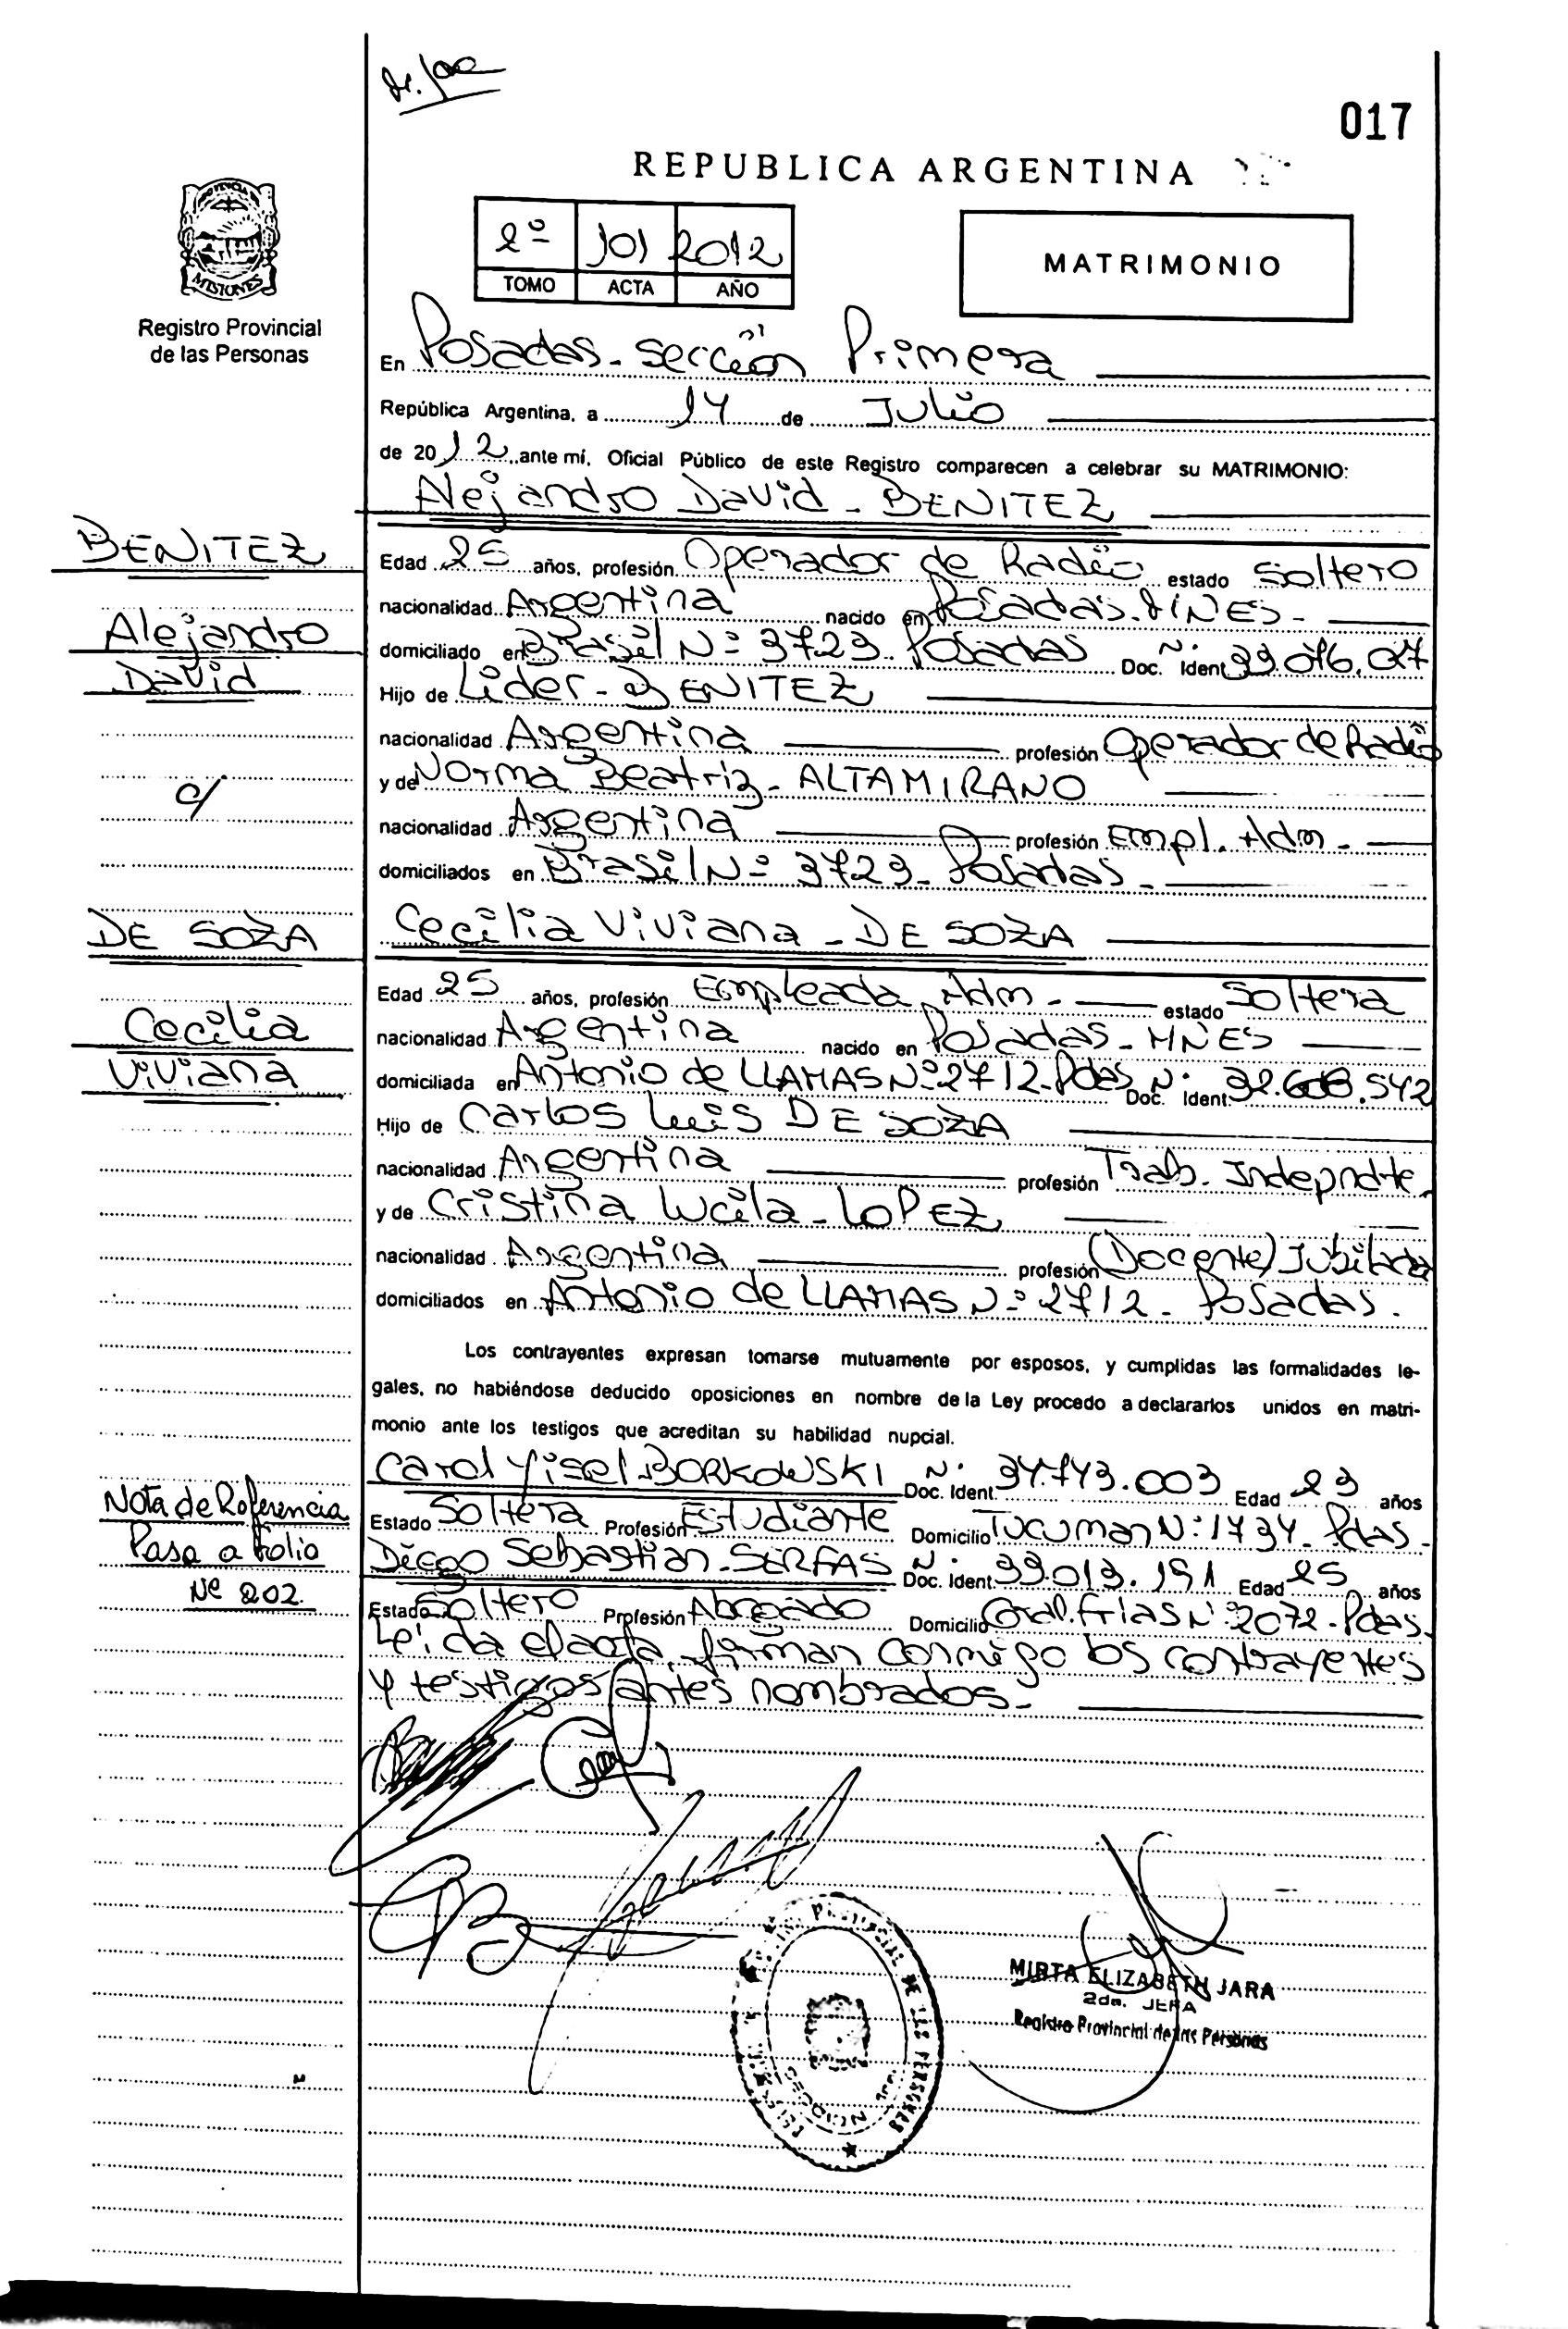 017
REPUBLICA ARGENTINA
PROVINCIA
MISIONES
Registro Provincial
de las Personas
2º 101 2012
TOMO ACTA AÑO
MATRIMONIO
En Posadas - sección Primera
República Argentina, a 14 de Julio
de 2012, ante mí, Oficial Público de este Registro comparecen a celebrar su MATRIMONIO:
Alejandro David - BENITEZ
BENITEZ
Alejandro
David
c/
DE SOZA
Cecilia
Viviana
Nota de Referencia
Pasa a Folio
Nº 202.
Edad 25 años, profesión Operador de Radio estado Soltero
nacionalidad Argentina nacido en Posadas. MNES -
domiciliado en Brasil Nº 3729. Posadas Doc. Ident. Nº 33.016.027
Hijo de Lider - BENITEZ
nacionalidad Argentina profesión Operador de Radio
y de Norma Beatriz - ALTAMIRANO
nacionalidad Argentina profesión Empl. Adm -
domiciliados en Brasil Nº 3729 - Posadas -
Cecilia Viviana - DE SOZA
Edad 25 años, profesión Empleada Adm - estado Soltera
nacionalidad Argentina nacido en Posadas - MNES
domiciliada en Antonio de LLAMAS Nº 2712 - Pdas Doc. Ident. Nº 32.608.542
Hijo de Carlos Luis DE SOZA
nacionalidad Argentina profesión Trab. Indepndte.
y de Cristina Lucila - LOPEZ
nacionalidad Argentina profesión (Docente) Jubilada
domiciliados en Antonio de LLAMAS Nº 2712 - Posadas.
Los contrayentes expresan tomarse mutuamente por esposos, y cumplidas las formalidades le-
gales, no habiéndose deducido oposiciones en nombre de la Ley procedo a declararlos unidos en matri-
monio ante los testigos que acreditan su habilidad nupcial.
Carol Yisel BORKOWSKI Doc. Ident. Nº 34.743.003 Edad 23 años
Estado Soltera Profesión Estudiante Domicilio Tucuman Nº 1734. Pdas -
Diego Sebastian - SERFAS Doc. Ident. Nº 33.013.151 Edad 25 años
Estado Soltero Profesión Abogado Domicilio Gral. Frias Nº 2072 - Pdas.
Leída el acta, firman conmigo los contrayentes
y testigos antes nombrados -
MIRTA ELIZABETH JARA
2da. JEFA
Registro Provincial de las Personas